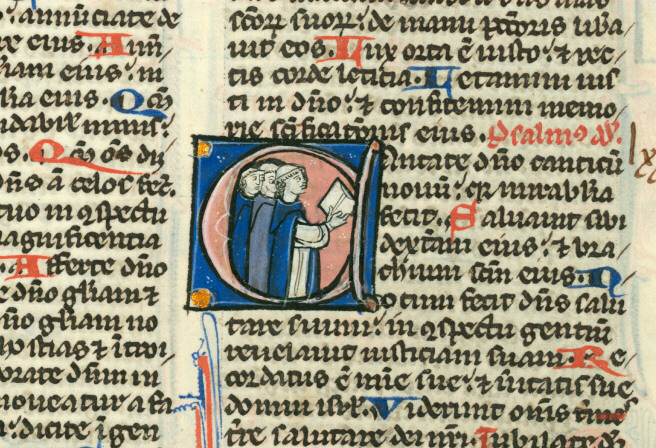 annūciate de
re eius. Annū
riam eius. in
lia eius. Qm̄
idabil' nimis.
os. Qm̄ oēs dij
dñs ā celos fec̄.
tuo in ꝯspectu
agnificentia
Afferte dño
e dño gl̄iam ⁊
ño gl̄iam no
hostias ⁊ īt̄roi
orate dñm in
moueatur a fa
dicite ī gen
sc̄oꝝ suoꝝ. de manu pc̄toris liba
uit eos. Lux orta ē iusto. ⁊ rec
tis corde letitia. Letamini ius
ti in dño. ⁊ confitemini memo
rie sc̄ificatōnis eius. Psalmꝰ
Cantate dño canticū
nouū. qr mirabilia
fecit. Saluauit sibi
dext̄am eius. ⁊ bra
chium sc̄m eius. N
otum fecit dñs salu
tare suum. in ꝯspectu gentiū
reuelauit iusticiam suam. Re
cordatus ē mīe sue. ⁊ ūitatis sue
domui isrl̄. Viderunt om̄s
tr̄e salutare dei nr̄i. Iubilate d